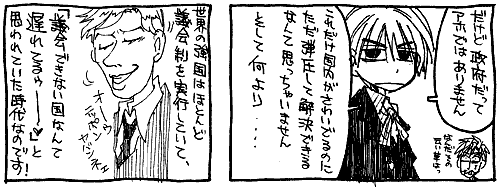 だけど政府だって
アホではありません
これだけ国内がさわいでるのに
ただ弾圧して解決できる
なんて思っちゃいません
そして何より・・・・
世界の強国はほとんど
議会制を実行していて、
「議会できない国なんて
遅れてるゥーー♡」と
思われていた時代なのです!
オーゥ
ニッポン
ヤバンネェ